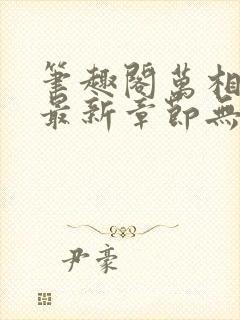 筆趣閣萬相
最新章節無
尹豪